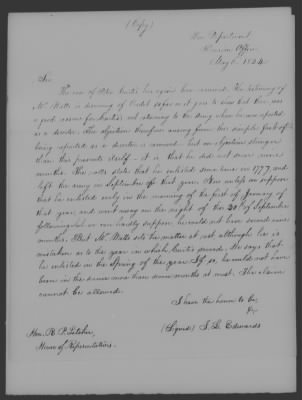 (Copy)
War Department,
Pension Office,
May 6, 1834
Sir
The case of Peter Curtis has again been examined. The testimony of
Mr. Watts is deserving of credit so far as it goes to show that there was
a good reason for Curtis's not returning to the Army when he was reported
as a deserter. The objection therefore arising from the simple fact of his
being reported as a deserter is removed but an objection stronger
than this presents itself - it is, that he did not serve nine
months. The rolls state that he enlisted some time in 1777, and
left the army in September of that year. Now unless we suppose
that he enlisted early on the morning of the first of January of
that year, and went away on the night of the 30 of September
following, which we can hardly suppose, he could not have served nine
months. But Mr. Watts sets the matter at rest, although he is
mistaken as to the year in which Curtis served. He says that
he enlisted in the Spring of the year. If so, he could not have
been in the service more than seven months at most. The claim
cannot be allowed.
I have the honor to be,
&c
(Signed) J. L. Edwards
Hon. R. P. Letcher,
House of Representatives.